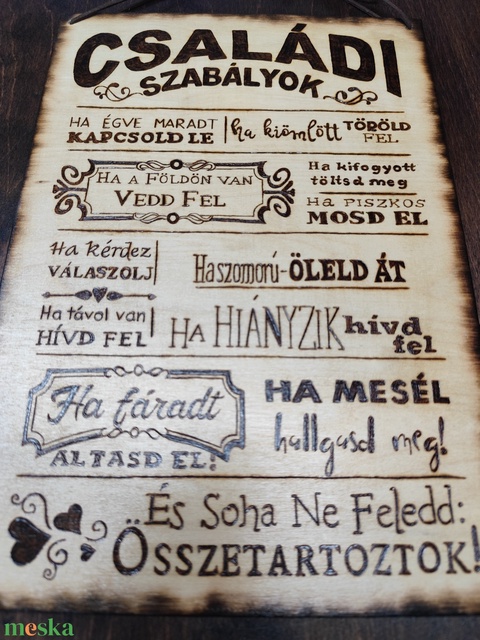 CSALÁDI
SZABÁLYOK
HA ÉGVE MARADT
KAPCSOLD LE
ha kiömlött TÖRÖLD
FEL
HA A FÖLDÖN VAN
VEDD FEL
Ha kifogyott
töltsd meg
HA PISZKOS
MOSD EL
Ha kérdez
VÁLASZOLJ
Ha szomorú-ÖLELD ÁT
Ha távol van
HÍVD FEL
HA HIÁNYZIK hívd
fel
Ha fáradt
ALTASD EL!
HA MESÉL
hallgasd meg!
És Soha Ne Feledd:
ÖSSZETARTOZTOK!
meska